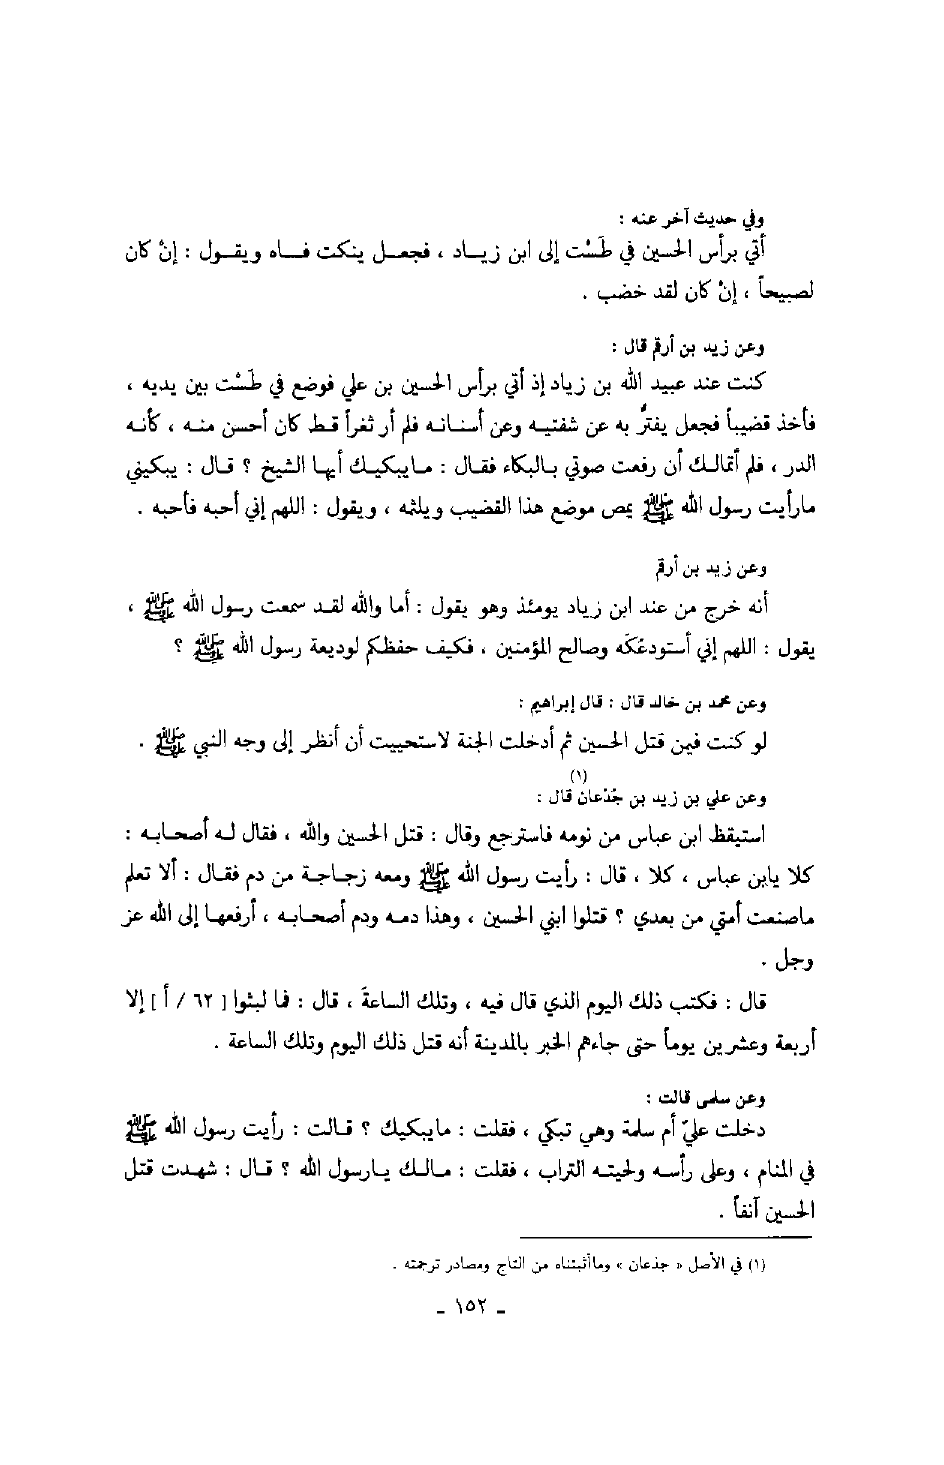 وفي حديث آخر عنه :
أتي برأس الحسين في طَسْت إلى ابن زيـاد ، فجعـل ينكت فـاه ويقـول : إنْ كان
لصبيحاً ، إنْ كان لقد خضب .
وعن زيد بن أرقم قال :
كنت عند عبيد الله بن زياد إذ أتي برأس الحسين بن علي فوضع في طَسْت بين يديه ،
فأخذ قضيباً فجعل يفترُّ به عن شفتيـه وعن أسنـانـه فلم أر ثغراً قـط كان أحسن منـه ، كأنـه
الدر ، فلم أتمالـك أن رفعت صوتي بـالبكاء فقـال : مـايبكيـك أيهـا الشيخ ؟ قـال : يبكيني
مارأيت رسول الله ﷺ يمص موضع هذا القضيب ويلثمه ، ويقول : اللهم إني أحبه فأحبه .
وعن زيد بن أرقم
أنه خرج من عند ابن زياد يومئذ وهو يقول : أما والله لقـد سمعت رسول الله ﷺ ،
يقول : اللهم إني أستودعُكَه وصالح المؤمنين ، فكيف حفظكم لوديعة رسول الله ﷺ ؟
وعن محمد بن خالد قال : قال إبراهيم :
لو كنت فيمن قتل الحسين ثم أدخلت الجنة لاستحييت أن أنظر إلى وجه النبي ﷺ .
وعن علي بن زيد بن جُدْعان(١) قال :
استيقظ ابن عباس من نومه فاسترجع وقال : قتل الحسين والله ، فقال لـه أصحابـه :
كلا يابن عباس ، كلا ، قال : رأيت رسول الله ﷺ ومعه زجـاجـة من دم فقـال : ألا تعلم
ماصنعت أمتي من بعدي ؟ قتلوا ابني الحسين ، وهذا دمـه ودم أصحابـه ، أرفعهـا إلى الله عز
وجل .
قال : فكتب ذلك اليوم الذي قال فيه ، وتلك الساعةَ ، قال : فما لبثوا [ ٦٢ / أ ] إلا
أربعة وعشرين يوماً حتى جاءهم الخبر بالمدينة أنه قتل ذلك اليوم وتلك الساعة .
وعن سلمى قالت :
دخلت عليّ أم سلمة وهي تبكي ، فقلت : مايبكيك ؟ قـالت : رأيت رسول الله ﷺ
في المنام ، وعلى رأسه ولحيته التراب ، فقلت : مـالـك يـارسول الله ؟ قـال : شهـدت قتل
الحسين آنفاً .
(١) في الأصل « جذعان » وماأثبتناه من التاج ومصادر ترجمته .
ـ ١٥٢ ـ